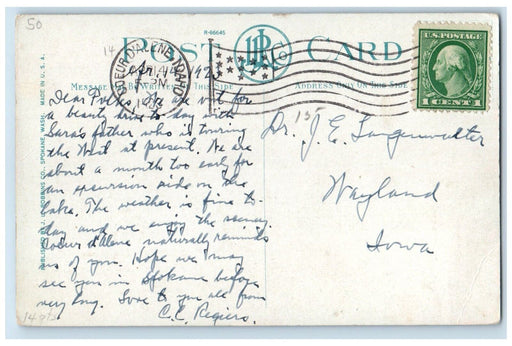 50
R-86645
POST CARD
COEUR D'ALENE, IDAHO
5-PM
U.S. POSTAGE
1 CENT 1
14
Apr. 14, 192
MESSAGE MAY BE WRITTEN ON THIS SIDE
ADDRESS ONLY ON THIS SIDE
Dear Folks: We are out for
a beauty drive to-day with
Sara's father who is touring
the West at present. We are
about a month too early for
an excursion ride on the
lake. The weather is fine to-
day and we enjoy the scenery.
Coeur d'Alene naturally reminds
us of you. Hope we may
see you in Spokane before
very long. Love to you all from
C.C. Regiers.
Dr. J. E. Langenwalter
Wayland
Iowa
MADE IN U.S.A.
SPOKANE, WASH.